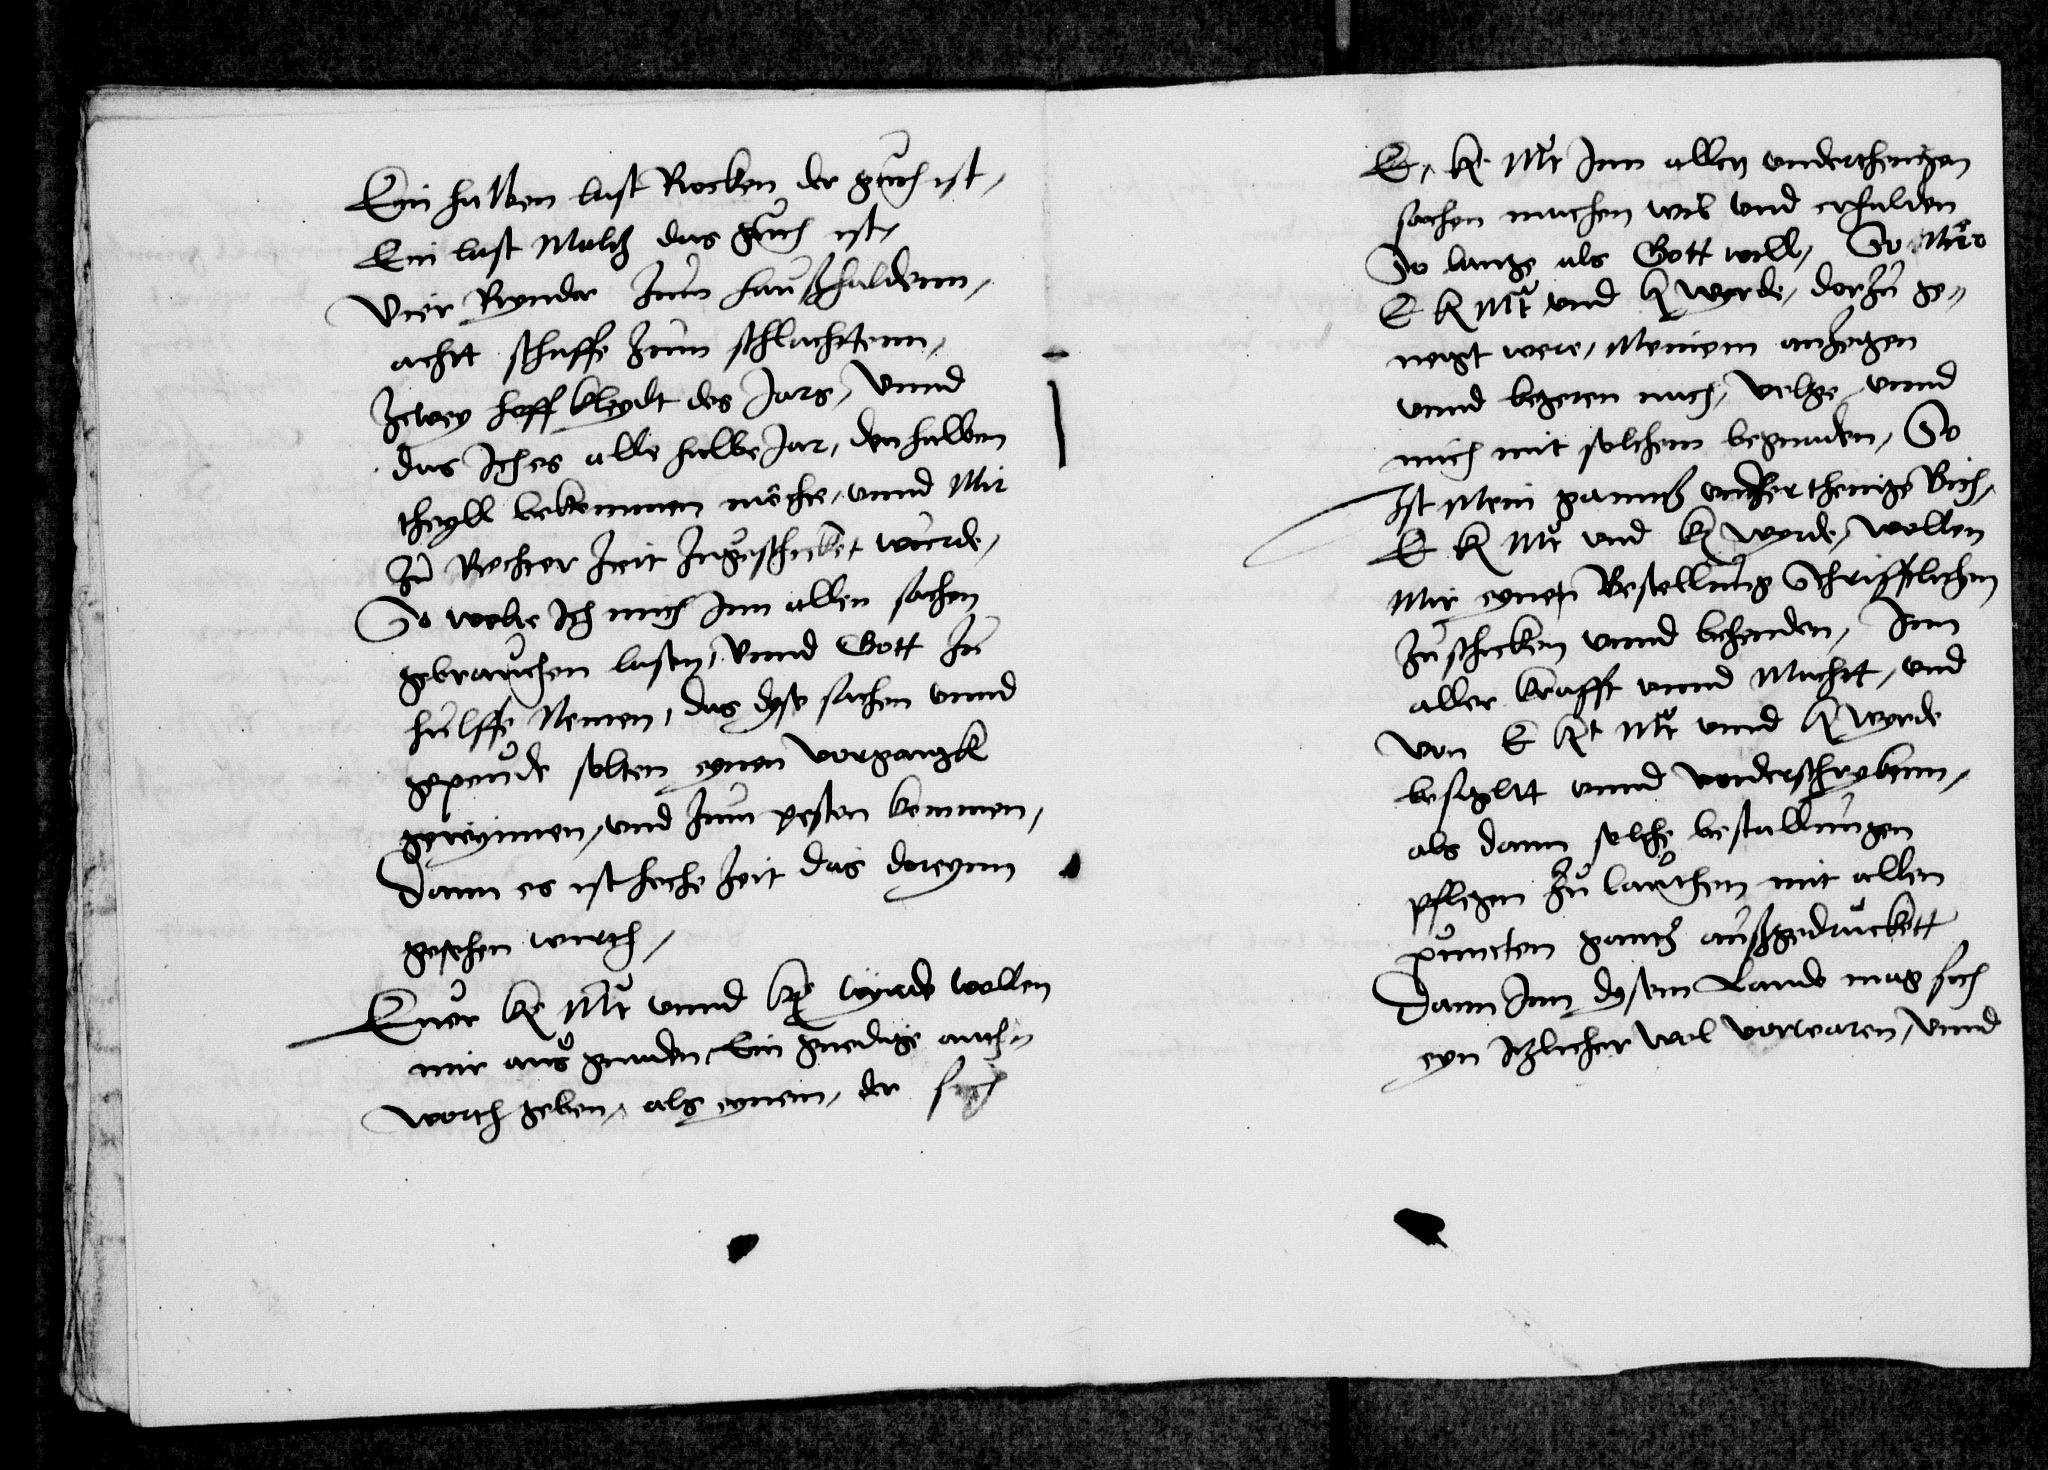 Ein halben last Rocken der guth ist,
Ein last Maltz das guth ist,
Vier Rynder zum haußhaldenn,
achtt schaffe zum schlachttenn,
Zcwey hoff kleydt des Jars, vnnd
das Ich es alle halbe Jar, den halben
theyll bekommen möchte, vnnd Mir
zu Rechter Zeit zugeschicket wurde,
So wolte Ich mich Inn allen sachen
gebrauchen lasen, vnnd Gott zu
hulffe Nemen, das dyse sachen vnnd
gepeude solten eynen vorgangk
gewynnen, vnd zum pesten kommen,
Dann es ist hoche Zeit das doreynn
gesehen wurth,
Euer K Mt vnnd K wyrde wollen
mir aus gnaden Ein gnedige anth⸗
worth geben, als eynem, der sich
E, K Mt Inn allen vnderthenigen
sachen machen wil vnd erhalden
So lange als Gott will, So
E K Mt vnd K wyrde, dorzu ge⸗
neigt were, Meinem anzeigen
vnnd begeren nach, volge vnnd
mich mit solchem begnaden, So
Ist Mein gannz vnderthenige Bith,
E K Mt vnd K wyrde, wollen
Mir eynen Bestellung Schrifftlichen
zu schicken vnnd behenden, Inn
aller krafft vnnd Machtt, vnd
von E K Mt vnnd K wyrde
besigeltt vnnd vnderschrybenn,
als dann solche bestallungen
pflegen zu lauthen mit allen
puncten gantz außgedruckett
Dann Inn dysem Lande mag sich
eyn Itzlicher wol vorwaren, vnnd